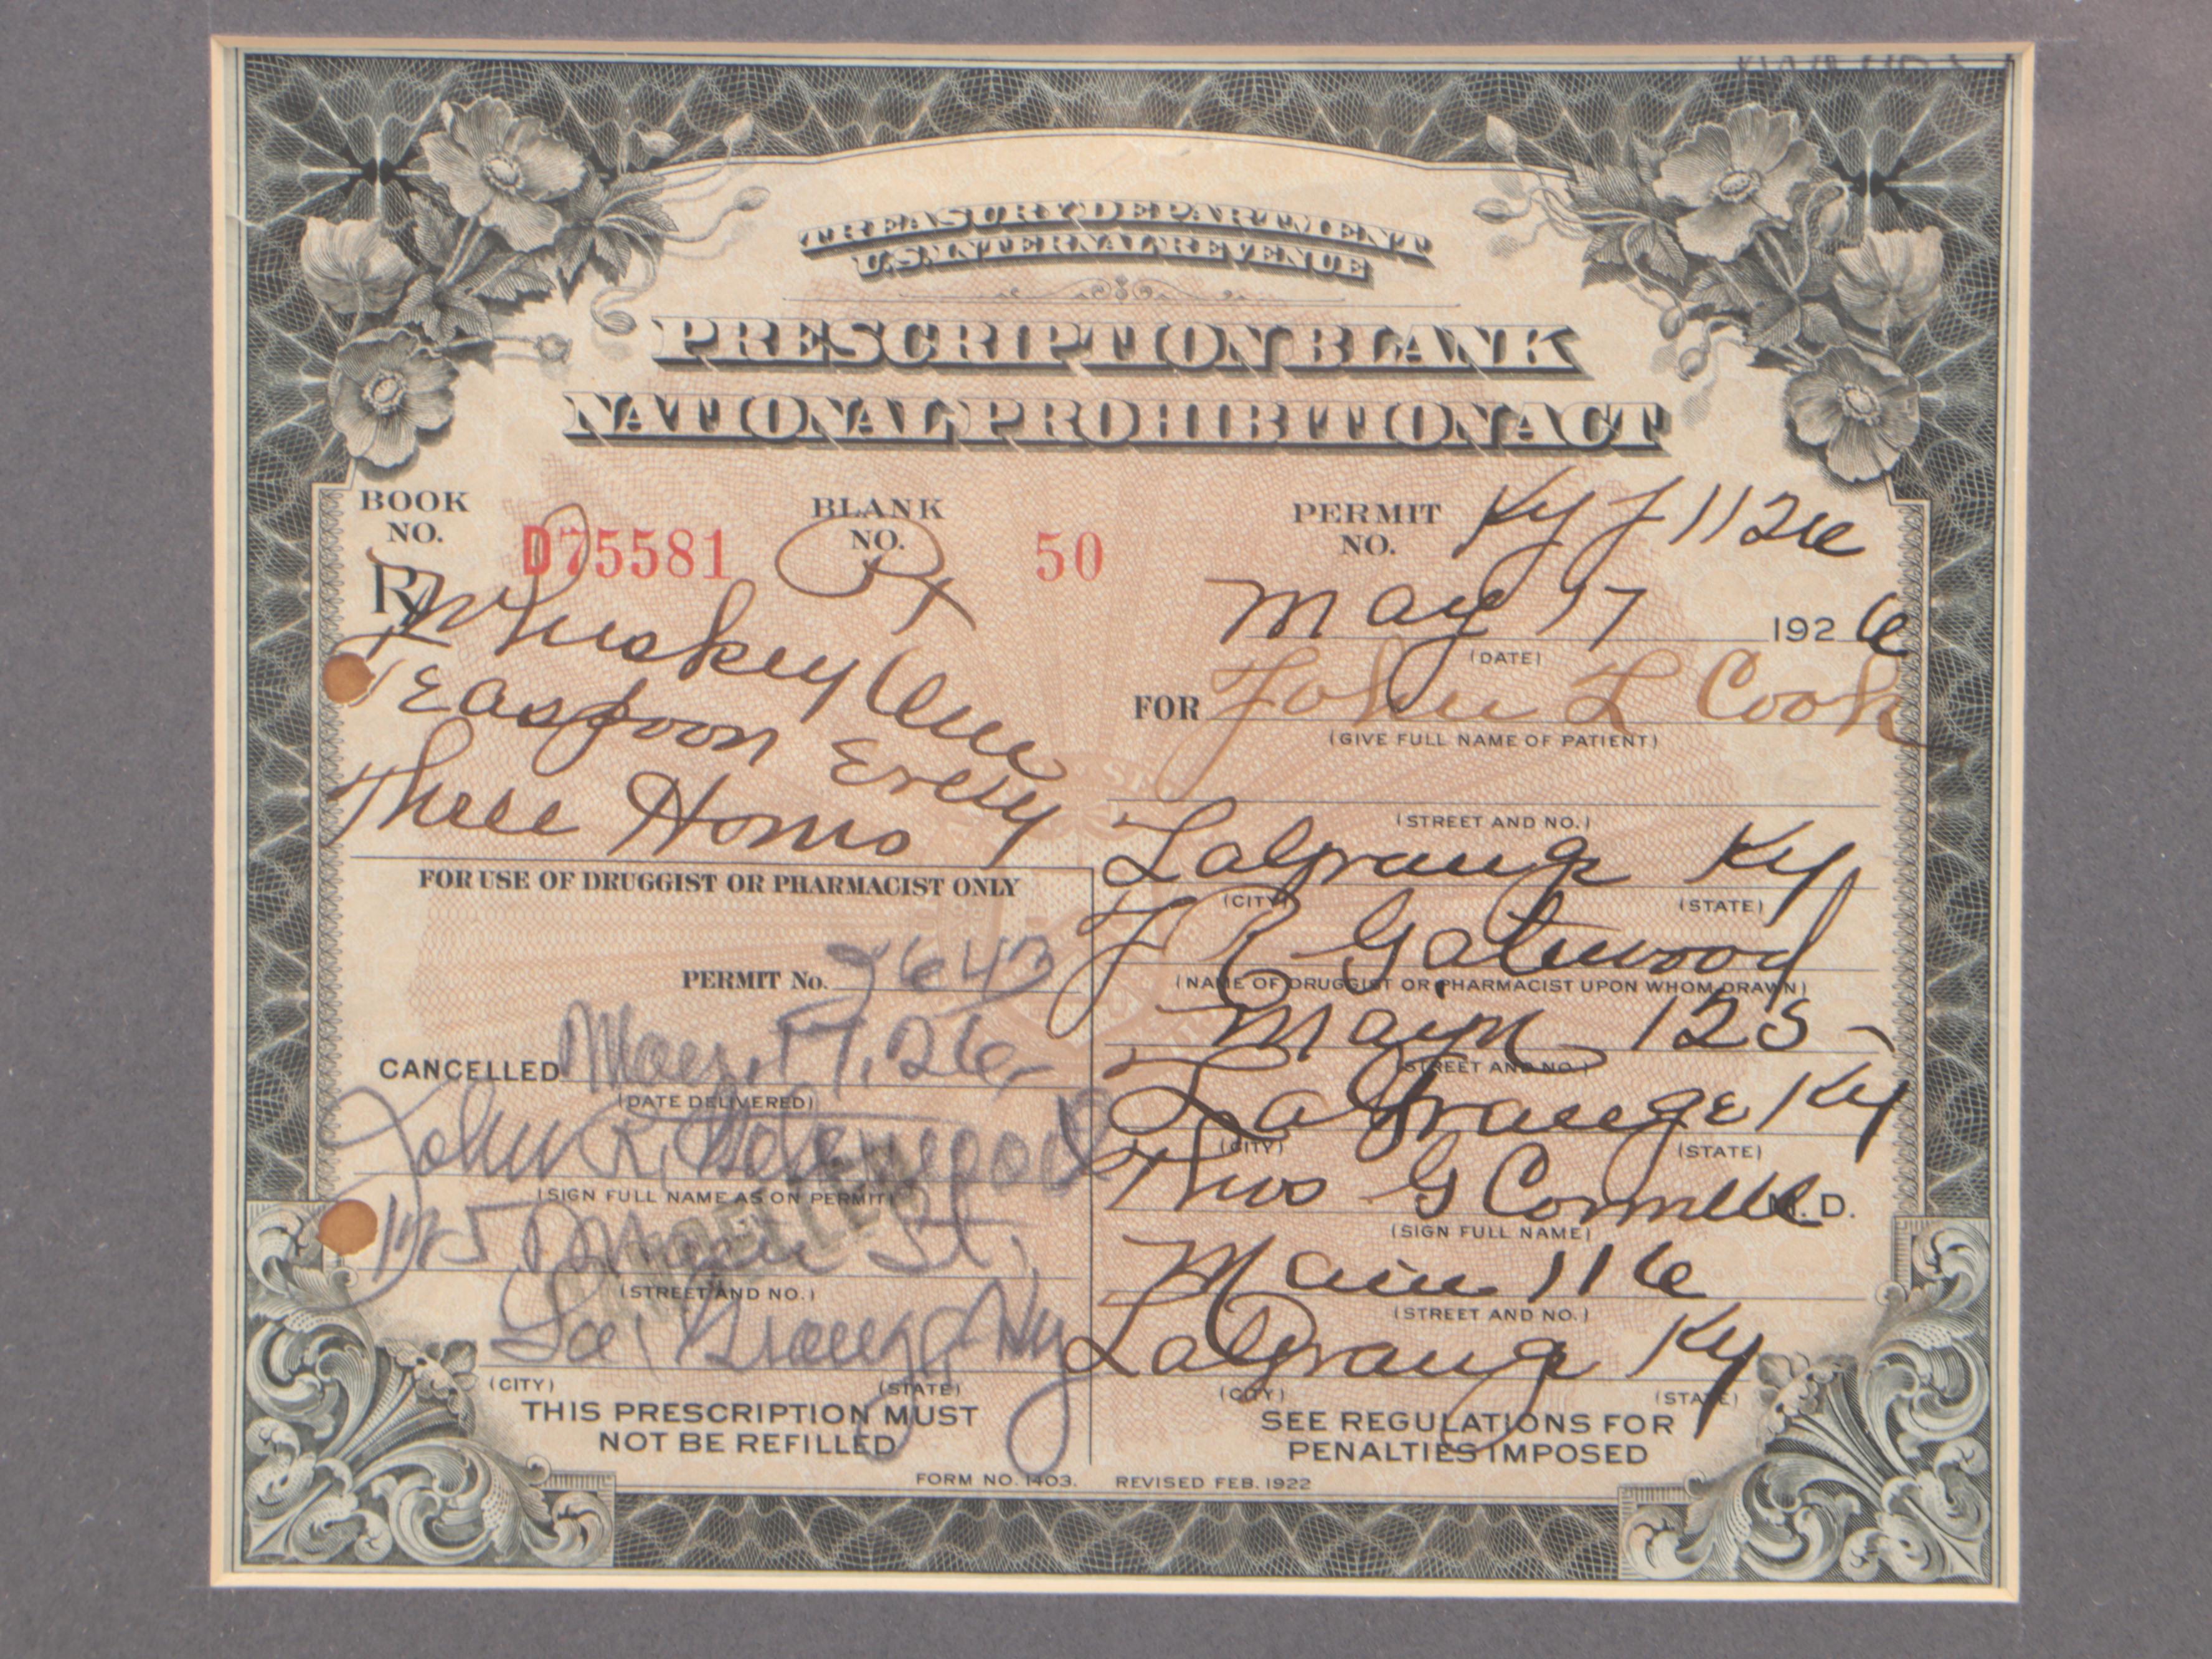 TREASURY DEPARTMENT
U.S. INTERNAL REVENUE
PRESCRIPTION BLANK
NATIONAL PROHIBITION ACT
BOOK NO. D75581 BLANK NO. 50 PERMIT NO. Ky J 1126
Rx
Whiskey One
Teaspoon Every
Three Hours
May 17 1926
(DATE)
FOR John L Cook
(GIVE FULL NAME OF PATIENT)
(STREET AND NO.)
LaGrange Ky
(CITY) (STATE)
J R Gatewood
(NAME OF DRUGGIST OR PHARMACIST UPON WHOM DRAWN)
Main 125
(STREET AND NO.)
LaGrange Ky
(CITY) (STATE)
Thos G Connell M.D.
(SIGN FULL NAME)
Main 116
(STREET AND NO.)
LaGrange Ky
(CITY) (STATE)
SEE REGULATIONS FOR
PENALTIES IMPOSED
FOR USE OF DRUGGIST OR PHARMACIST ONLY
PERMIT No. 2643
CANCELLED May. 17. 26-
(DATE DELIVERED)
John R. Gatewood
(SIGN FULL NAME AS ON PERMIT)
125 Main St,
(STREET AND NO.)
CANCELLED
La Grange Ky
(CITY) (STATE)
THIS PRESCRIPTION MUST
NOT BE REFILLED
FORM NO. 1403. REVISED FEB. 1922